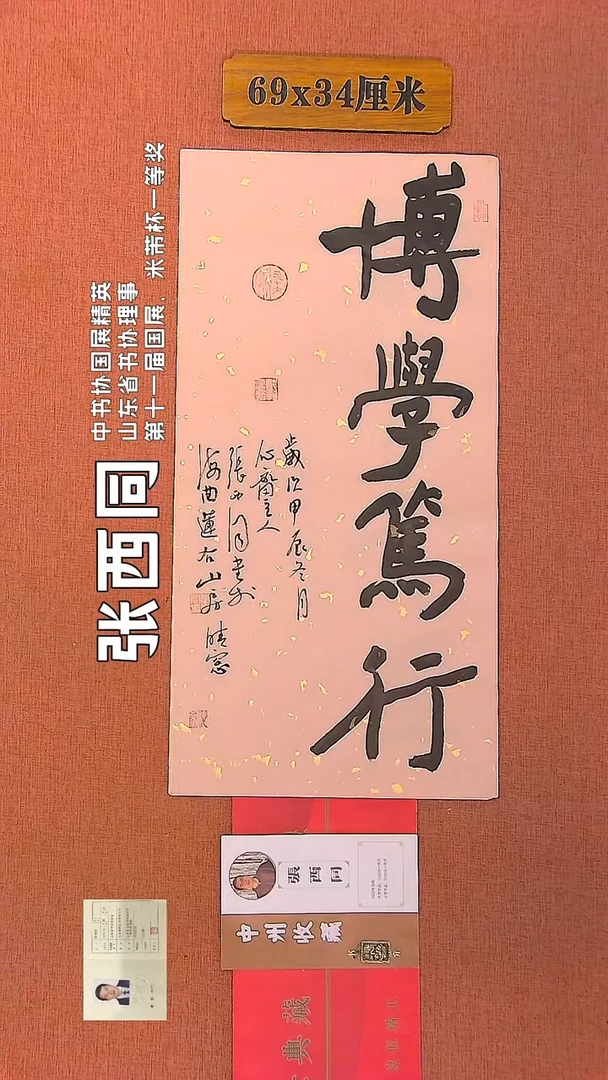 69x34厘米
博學篤行
歲次甲辰冬月
心齋主人
張西同書於
海曲蓮右山房晴窗
张西同
中书协国展精英
山东省书协理事
第十一届国展,米芾杯一等奖
張西同
中州收藏
典藏